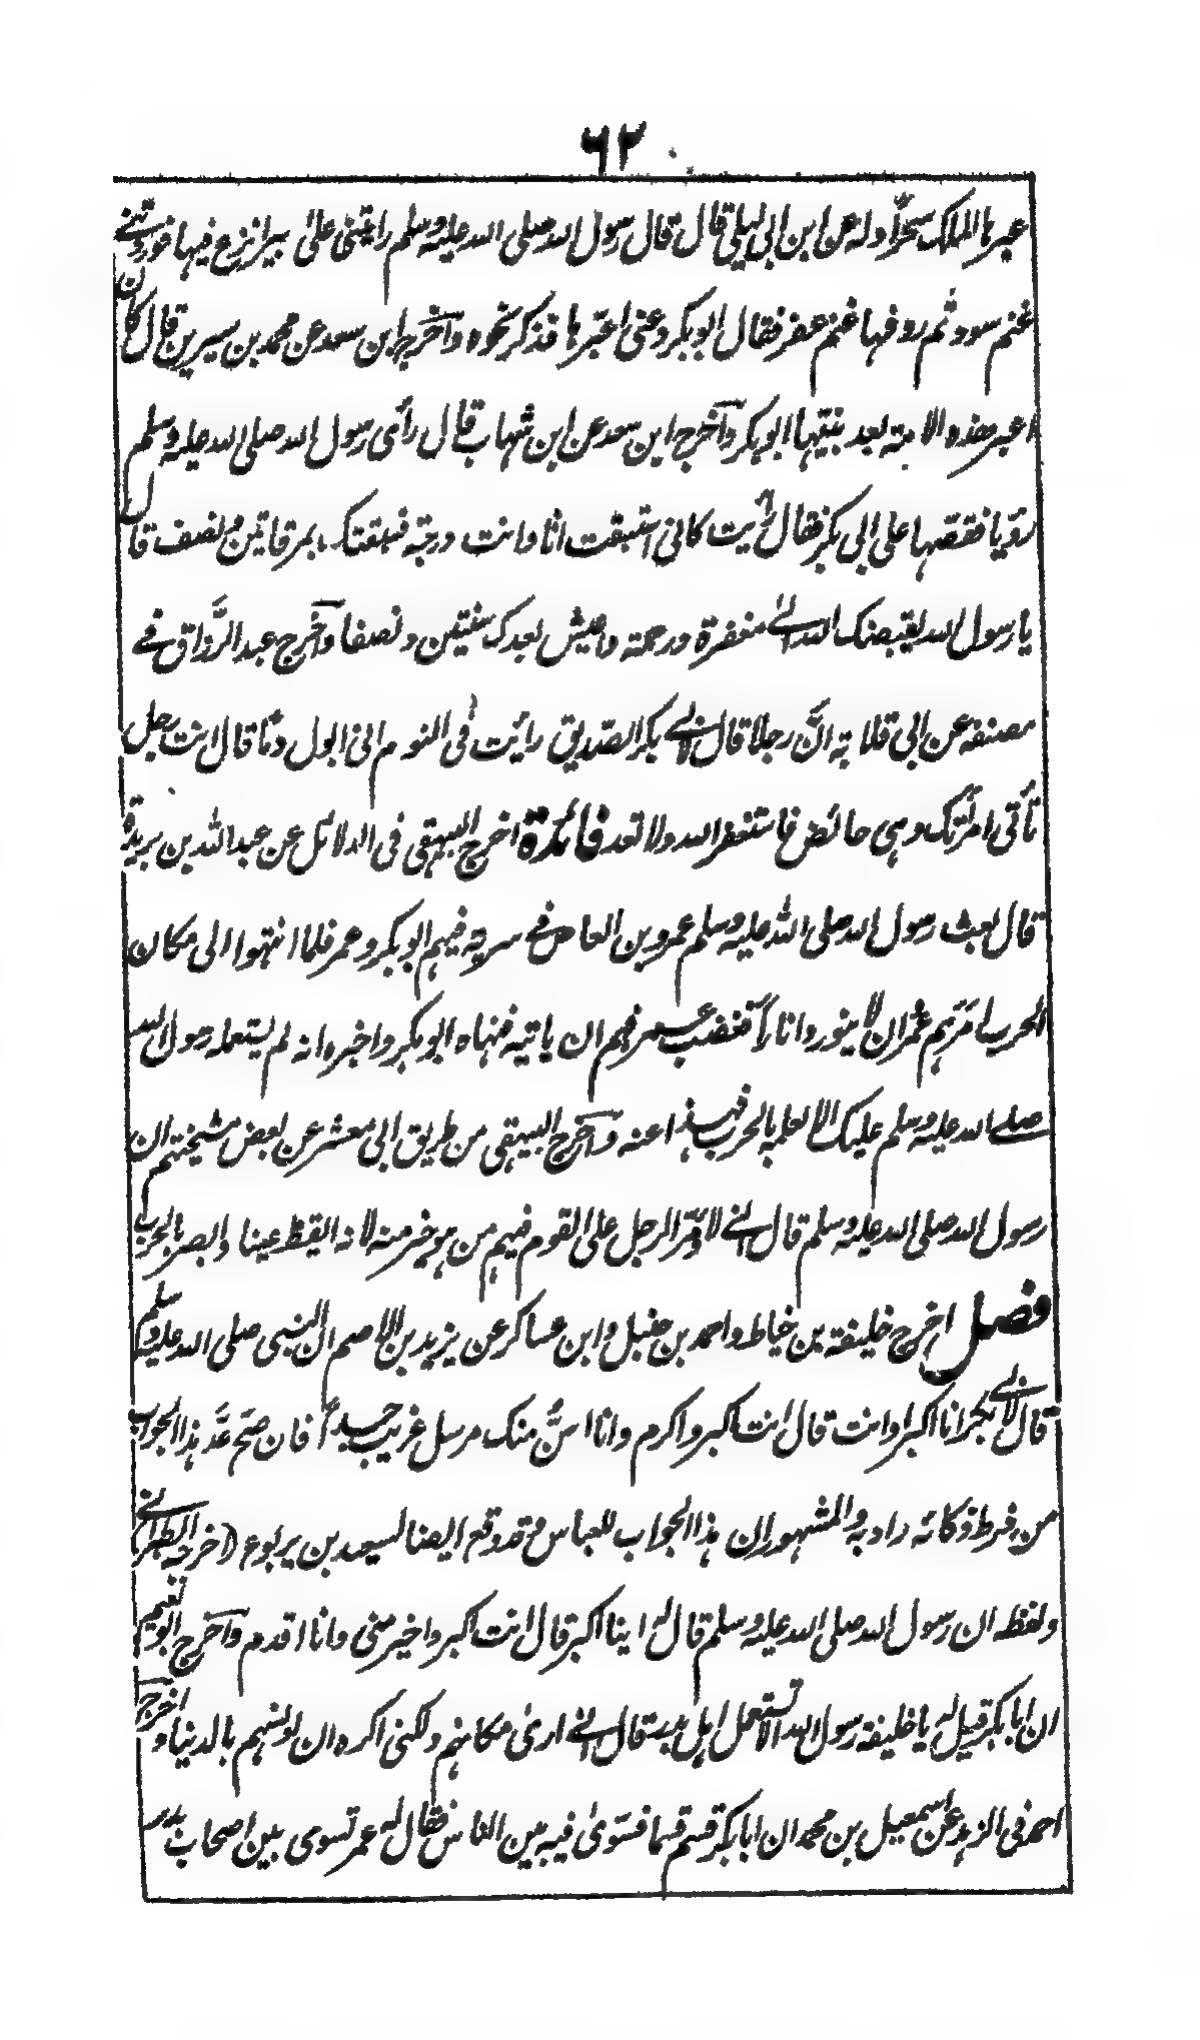 ٦٢
عبرها الملك سحرا وله عن ابن ابی لیلی قال قال رسول الله صلی الله علیه وسلم رایتنی علی بیر انزع فیها فوردتنی
غنم سود ثم ردفها غنم عفر فقال ابو بکر دعنی اعبرها فذکر نحوه وآخرج ابن سعد عن محمد بن سیرین قال کان
اعبر هذه الامة بعد نبیّها ابو بکر وآخرج ابن سعد عن ابن شهاب قال رأی رسول الله صلی الله علیه وسلم
رؤیا فقصّها علی ابی بکر فقال رأیت کانی استبقت انا وانت درجة فسبقتک بمرقاتین و نصف قال
یا رسول الله یقبضک الله الی مغفرة ورحمة واعیش بعدک سنتین ونصفا وآخرج عبد الرزّاق فی
مصنفه عن ابی قلابة انّ رجلا قال لابی بکر الصّدیق رأیت فی النوم انی ابول دمًا قال انت رجل
تأتی امرأتک وهی حائض فاستغفر الله ولا تعد فائدة اخرج البیهقی فی الدلائل عن عبد الله بن بریدة
قال بعث رسول الله صلی الله علیه وسلم عمرو بن العاص فی سریة فیهم ابو بکر وعمر فلما انتهوا الی مکان
الحرب امرهم عمرو ان لا ینوروا نارا فغضب عمر فهم ان یاتیه فنهاه ابو بکر واخبره انه لم یستعمله رسول الله
صلی الله علیه وسلم علیک الا لعلمه بالحرب فهدا عنه وآخرج البیهقی من طریق ابی معشر عن بعض مشیختهم ان
رسول الله صلی الله علیه وسلم قال انی لاؤمّر الرجل علی القوم فیهم من هو خیر منه لانه ایقظ عینا وابصر بالحرب
فصل اخرج خلیفة بن خیاط واحمد بن حنبل وابن عساکر عن یزید بن الاصم ان النبی صلی الله علیه وسلم
قال لابی بکر انا اکبر او انت قال انت اکبر واکرم وانا اسنّ منک مرسل غریب جدا فان صح عدّ هذا الجواب
من فرط ذکائه وادبه والمشهور ان هذا الجواب للعباس وقد وقع ایضا لسعید بن یربوع اخرجه الطبرانی
ولفظه ان رسول الله صلی الله علیه وسلم قال له اینا اکبر قال انت اکبر واخیر منی وانا اقدم وآخرج ابو نعیم
ان ابا بکر قیل له یا خلیفة رسول الله الا تستعمل اهل بدر قال انی اری مکانهم ولکنی اکره ان ادنسهم بالدنیا واخرج
احمد فی الزهد عن اسمعیل بن محمد ان ابا بکر قسم قسما فسوّی فیه بین الناس فقال له عمر تسوی بین اصحاب بدر